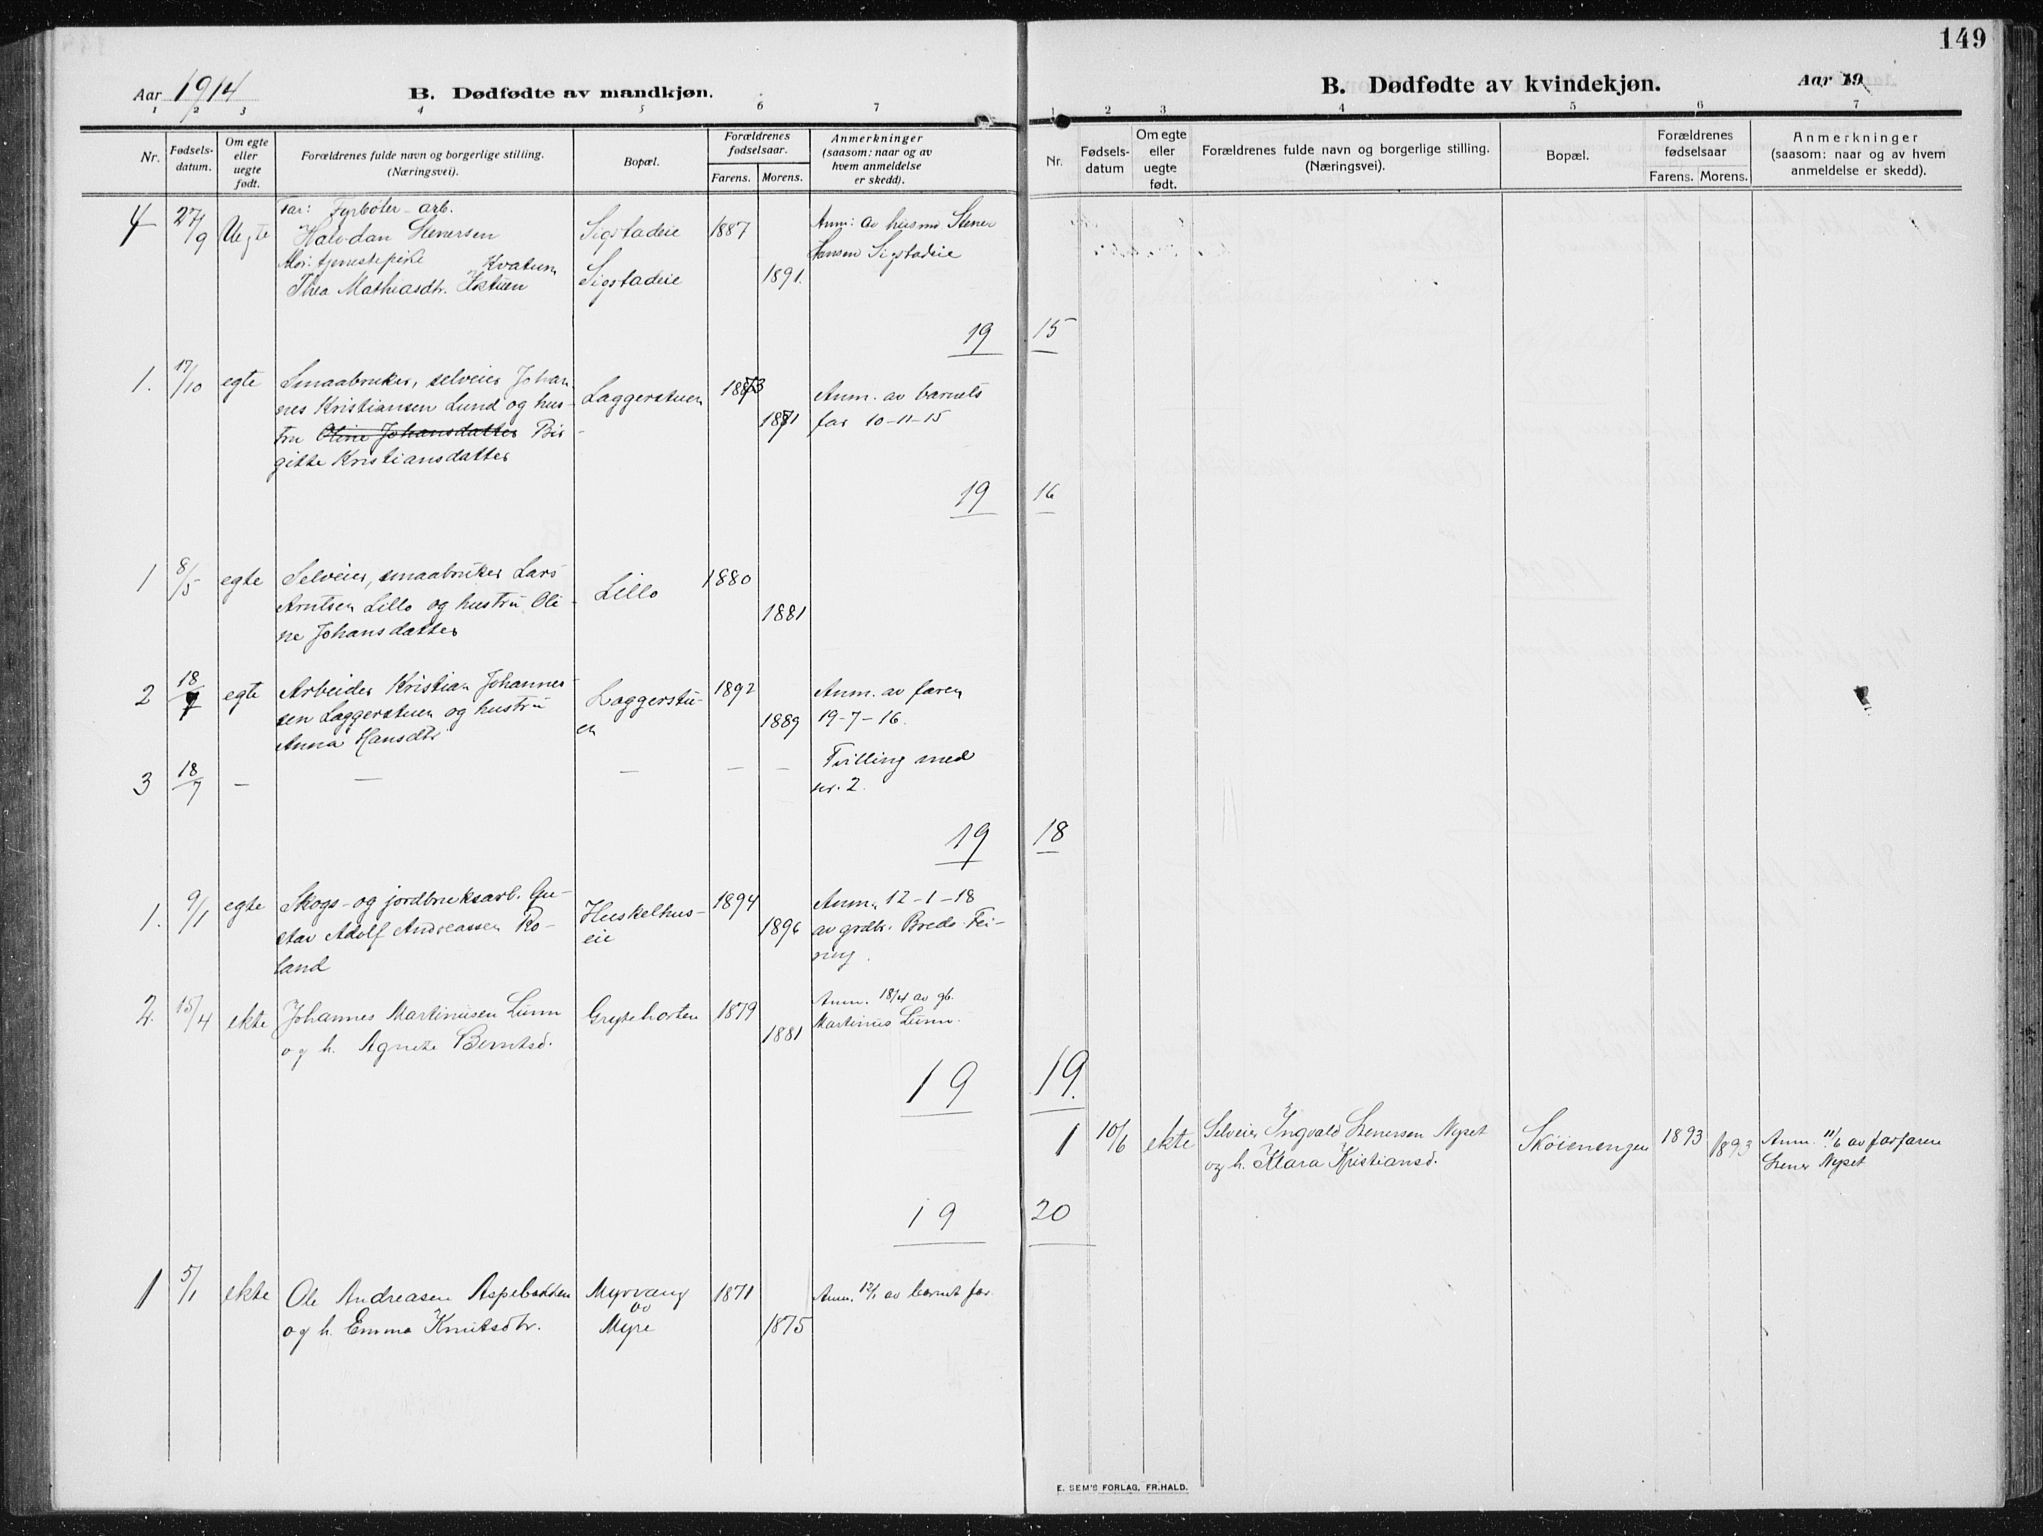 149
Aar 1914
B. Dødfødte av mandkjøn.
1 2 3 4 5 6 7
Nr.
Fødsels-
datum.
Om egte
eller
uegte
født.
Forældrenes fulde navn og borgerlige stilling.
(Næringsvei).
Bopæl.
Forældrenes
fødselsaar.
Farens. Morens.
Anmerkninger
(saasom: naar og av
hvem anmeldelse
er skedd).
4 27/9 Uegte
Far: Fyrbøter - arb.
Halvdan Stenersen Sigstadeie 1887 Anm: av husm Stener
Hansen Sigstadeie
Mor: tjenestepike Kvatum
Thea Mathiasdtr. Sigstadeie 1891.
19 15
1. 17/10 egte Smaabruker, selveier Johan-
nes Kristiansen Lund og hus-
tru Oline Johansdatter Bir-
gitte Kristiansdatter
Laggerstuen 1873 1871
Anm. av barnets
far 10-11-15
19 16
1 8/5 egte Selveier, smaabruker Lars
Arntsen Lillo og hustru Oli-
ne Johansdatter
Lillo 1880 1881
2 18/7 egte Arbeider Kristian Johannes-
sen Laggerstuen og hustru
Anna Hansdtr
Laggerstu-
en 1892 1889
Anm. av faren
19-7-16.
3 18/7 — — — — —
Tvilling med
nr. 2.
19 18
1. 9/1 egte Skogs- og jordbruksarb. Gu-
stav Adolf Andreassen Ro-
land
Huskelhus-
eie 1894 1896
Anm. 12-1-18
av grdbr. Brede Fei-
ring.
2. 15/4 ekte Johannes Martinusen Lunn
og h. Agnete Berntsd.
Grytehorten 1879 1881
Anm. 18/4 av gb.
Martinus Lunn.
19 19.
19 20
1 5/1 ekte Ole Andreasen Aspebakken
og h. Emma Knutsdtr.
Myrvang
av
Myre 1871 1875
Anm. 12/1 av barnet far.
B. Dødfødte av kvindekjøn.
Aar 19
1 2 3 4 5 6 7
Nr.
Fødsels-
datum
Om egte
eller
uegte
født.
Forældrenes fulde navn og borgerlige stilling.
(Næringsvei).
Bopæl.
Forældrenes
fødselsaar
Farens. Morens.
Anmerkninger
(saasom: naar og av hvem
anmeldelse er skedd).
1 10/6 ekte Selveier Ingvald Stenersen Nyset
og h. Klara Kristiansd.
Skoimengen 1893 1893
Anm. 11/6 av farfaren
Stener Nyset
E. SEM'S FORLAG, FR.HALD.